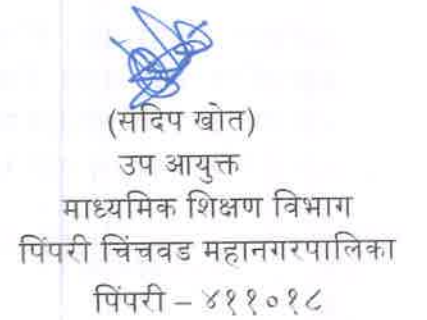 (संदिप खोत)
उप आयुक्त
माध्यमिक शिक्षण विभाग
पिंपरी चिंचवड महानगरपालिका
पिंपरी – ४११०१८